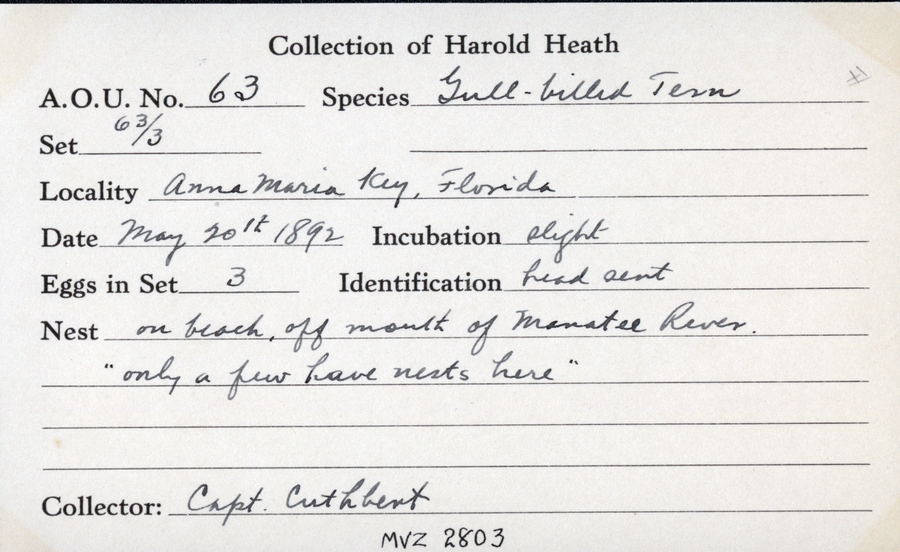 Collection of Harold Heath
A.O.U. No. 63 Species Gull-billed Tern
Set 63/3
Locality Anna Maria Key, Florida
Date May 20th 1892 Incubation slight
Eggs in Set 3 Identification head sent
Nest on beach, off mouth of Manatee River.
"only a few have nests here"
Collector: Capt. Cuthbert
MVZ 2803